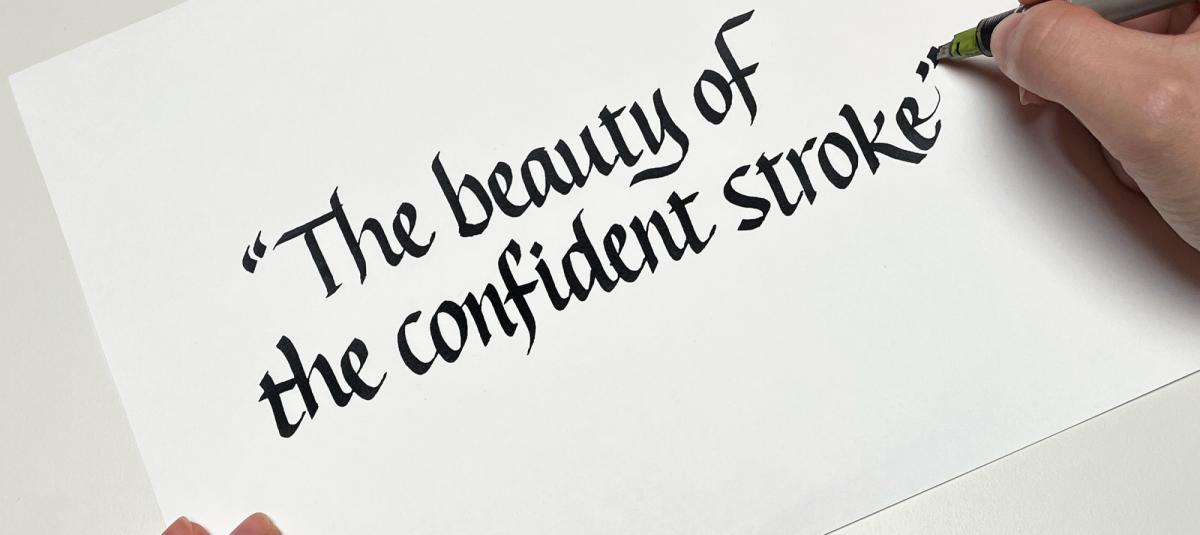 “The beauty of
the confident stroke”